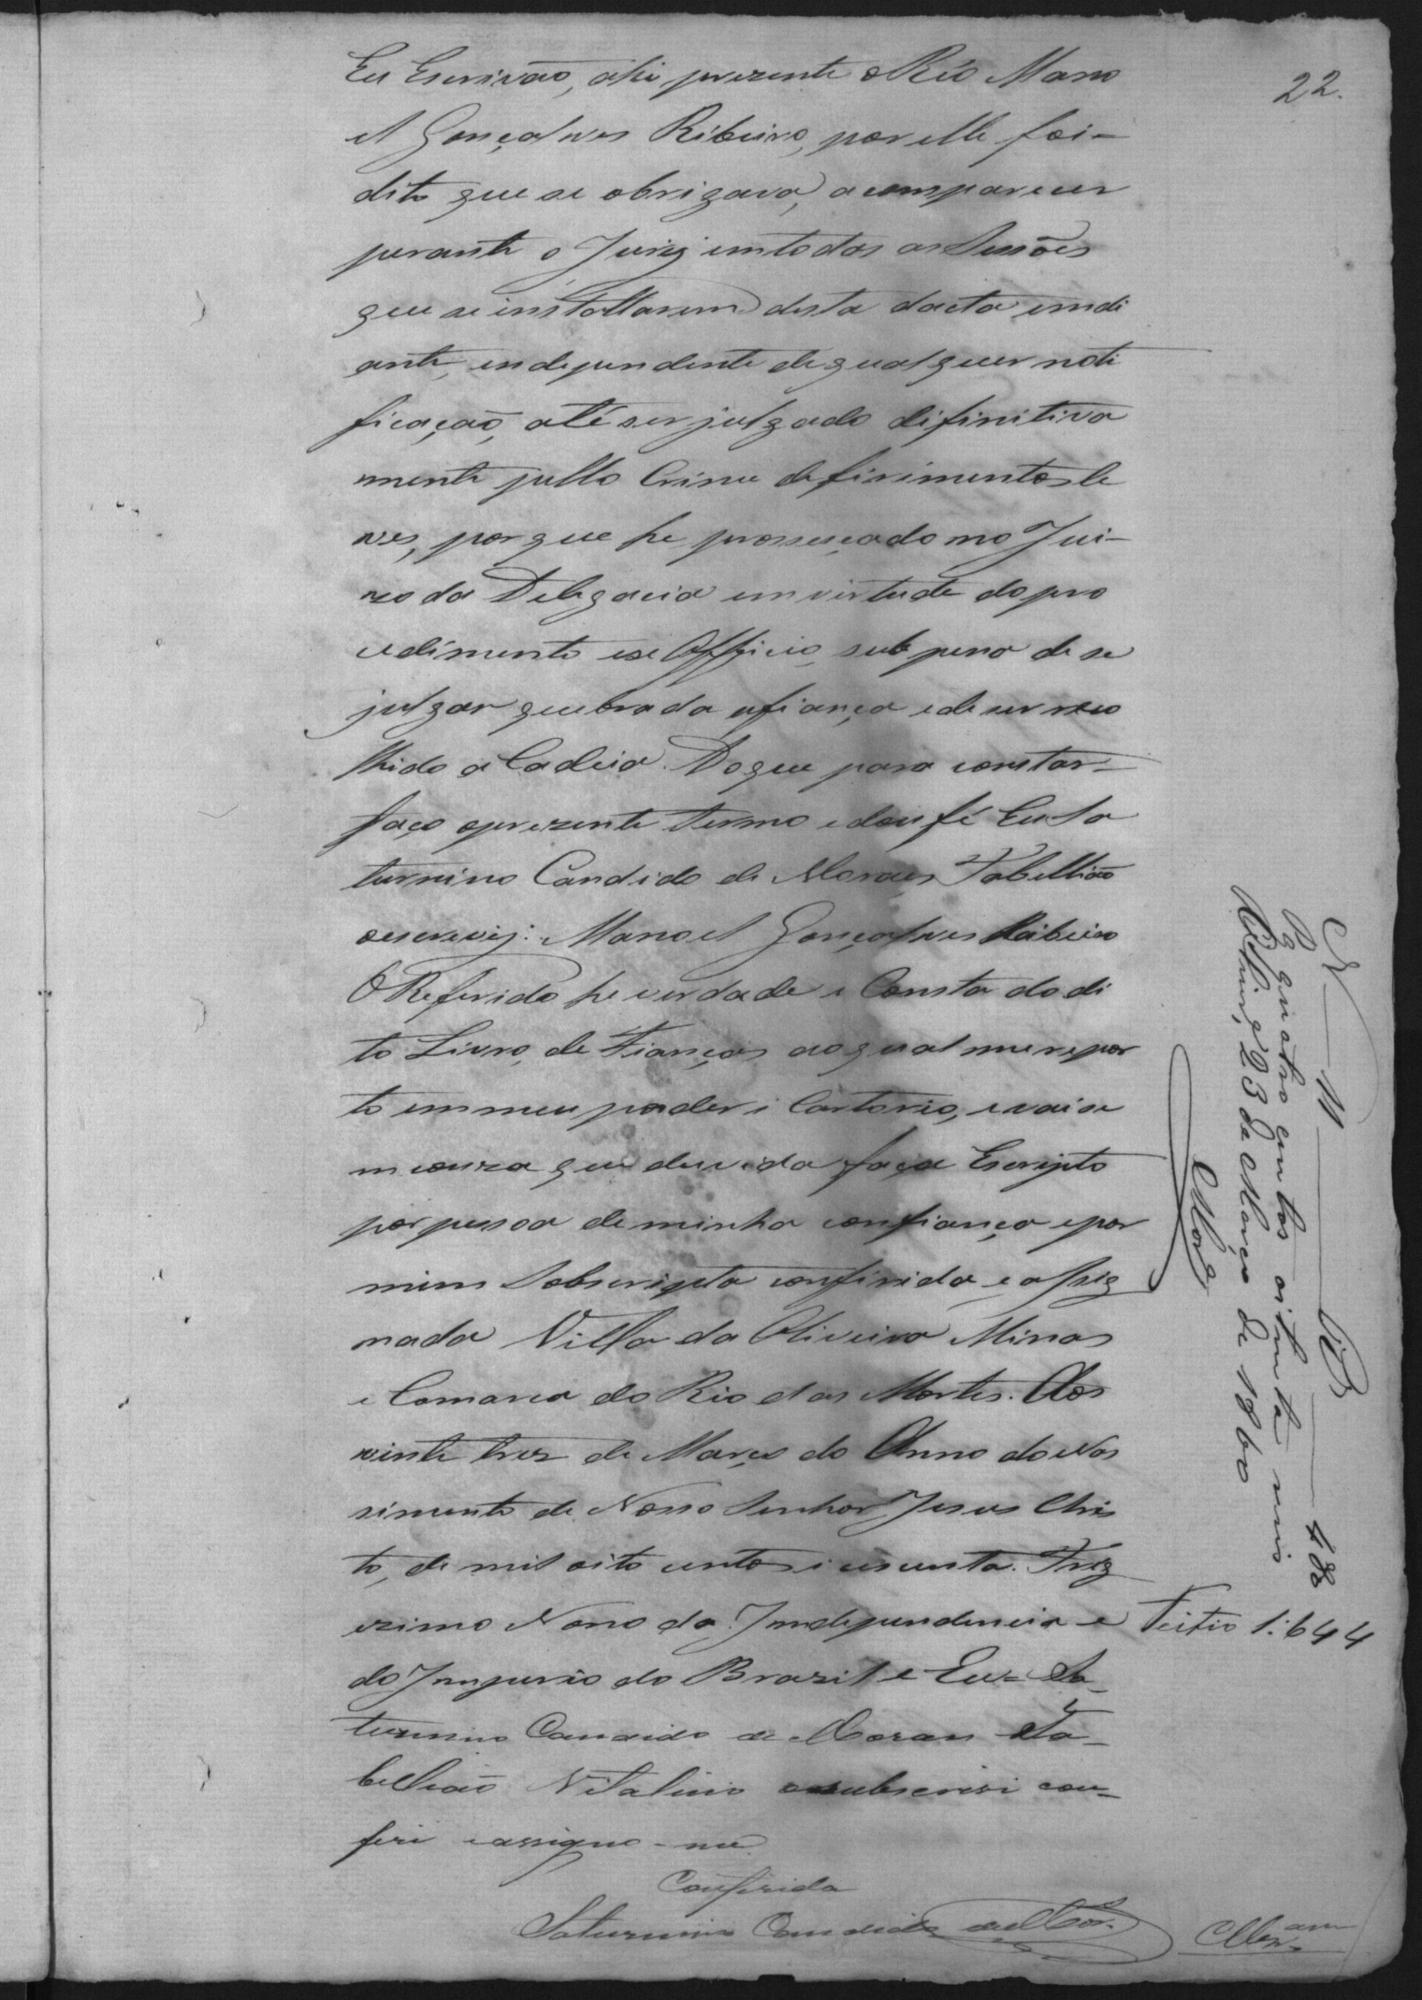 22.
Eu Escrivão, ahi prezente o Réo Mano
el Gonçalves Ribeiro, por elle foi-
dito que se obrigava, a comparecer
perante o Jury em todas as Sessões
que se installarem desta dacta em di
ante, independente de qualquer noti
ficação, até ser julgado difinitiva
mente pello Crime de firimentos le
ves, por que he prossessado no Jui-
zo da Delegacia em virtude do pro
cedimento ex Officio, sub pena de se
julgar quebrada afiança e de ser reco
lhido a Cadeia. Do que para constar-
faço oprezente termo e dou fé Eu Sa
turnino Candido de Moraes Tabellião
oescrevij. Manoel Gonçalves Ribeiro
O Referido he verdade e Consta do di
to Livro, de Fianças ao qual me repor
to em meu poder i Cartorio, e vai se
m couza que duvida faça Escripto
por pessoa de minha confiança e por
mim Sobscripta confirida, e assig
nada Villa da Oliveira Minas
e Comarca do Rio das Mortes. Aos
vinte trez de Março do Anno do Nas
simento de Nosso Senhor Jesus Chris
to, de mil oito centos i cecenta. Trig
ezimo Nono da Independencia e
do Imperio do Brazil e Eu Sa-
turnino Candido de Moraes Ta-
bellião Vitalicio osubscrevi con-
feri e assigno-me
Conferida
Saturnino Candido de Mor.
N 11 48
Pg quatro centos oitenta reis
23 de Março de 1860
Feitio 1:644